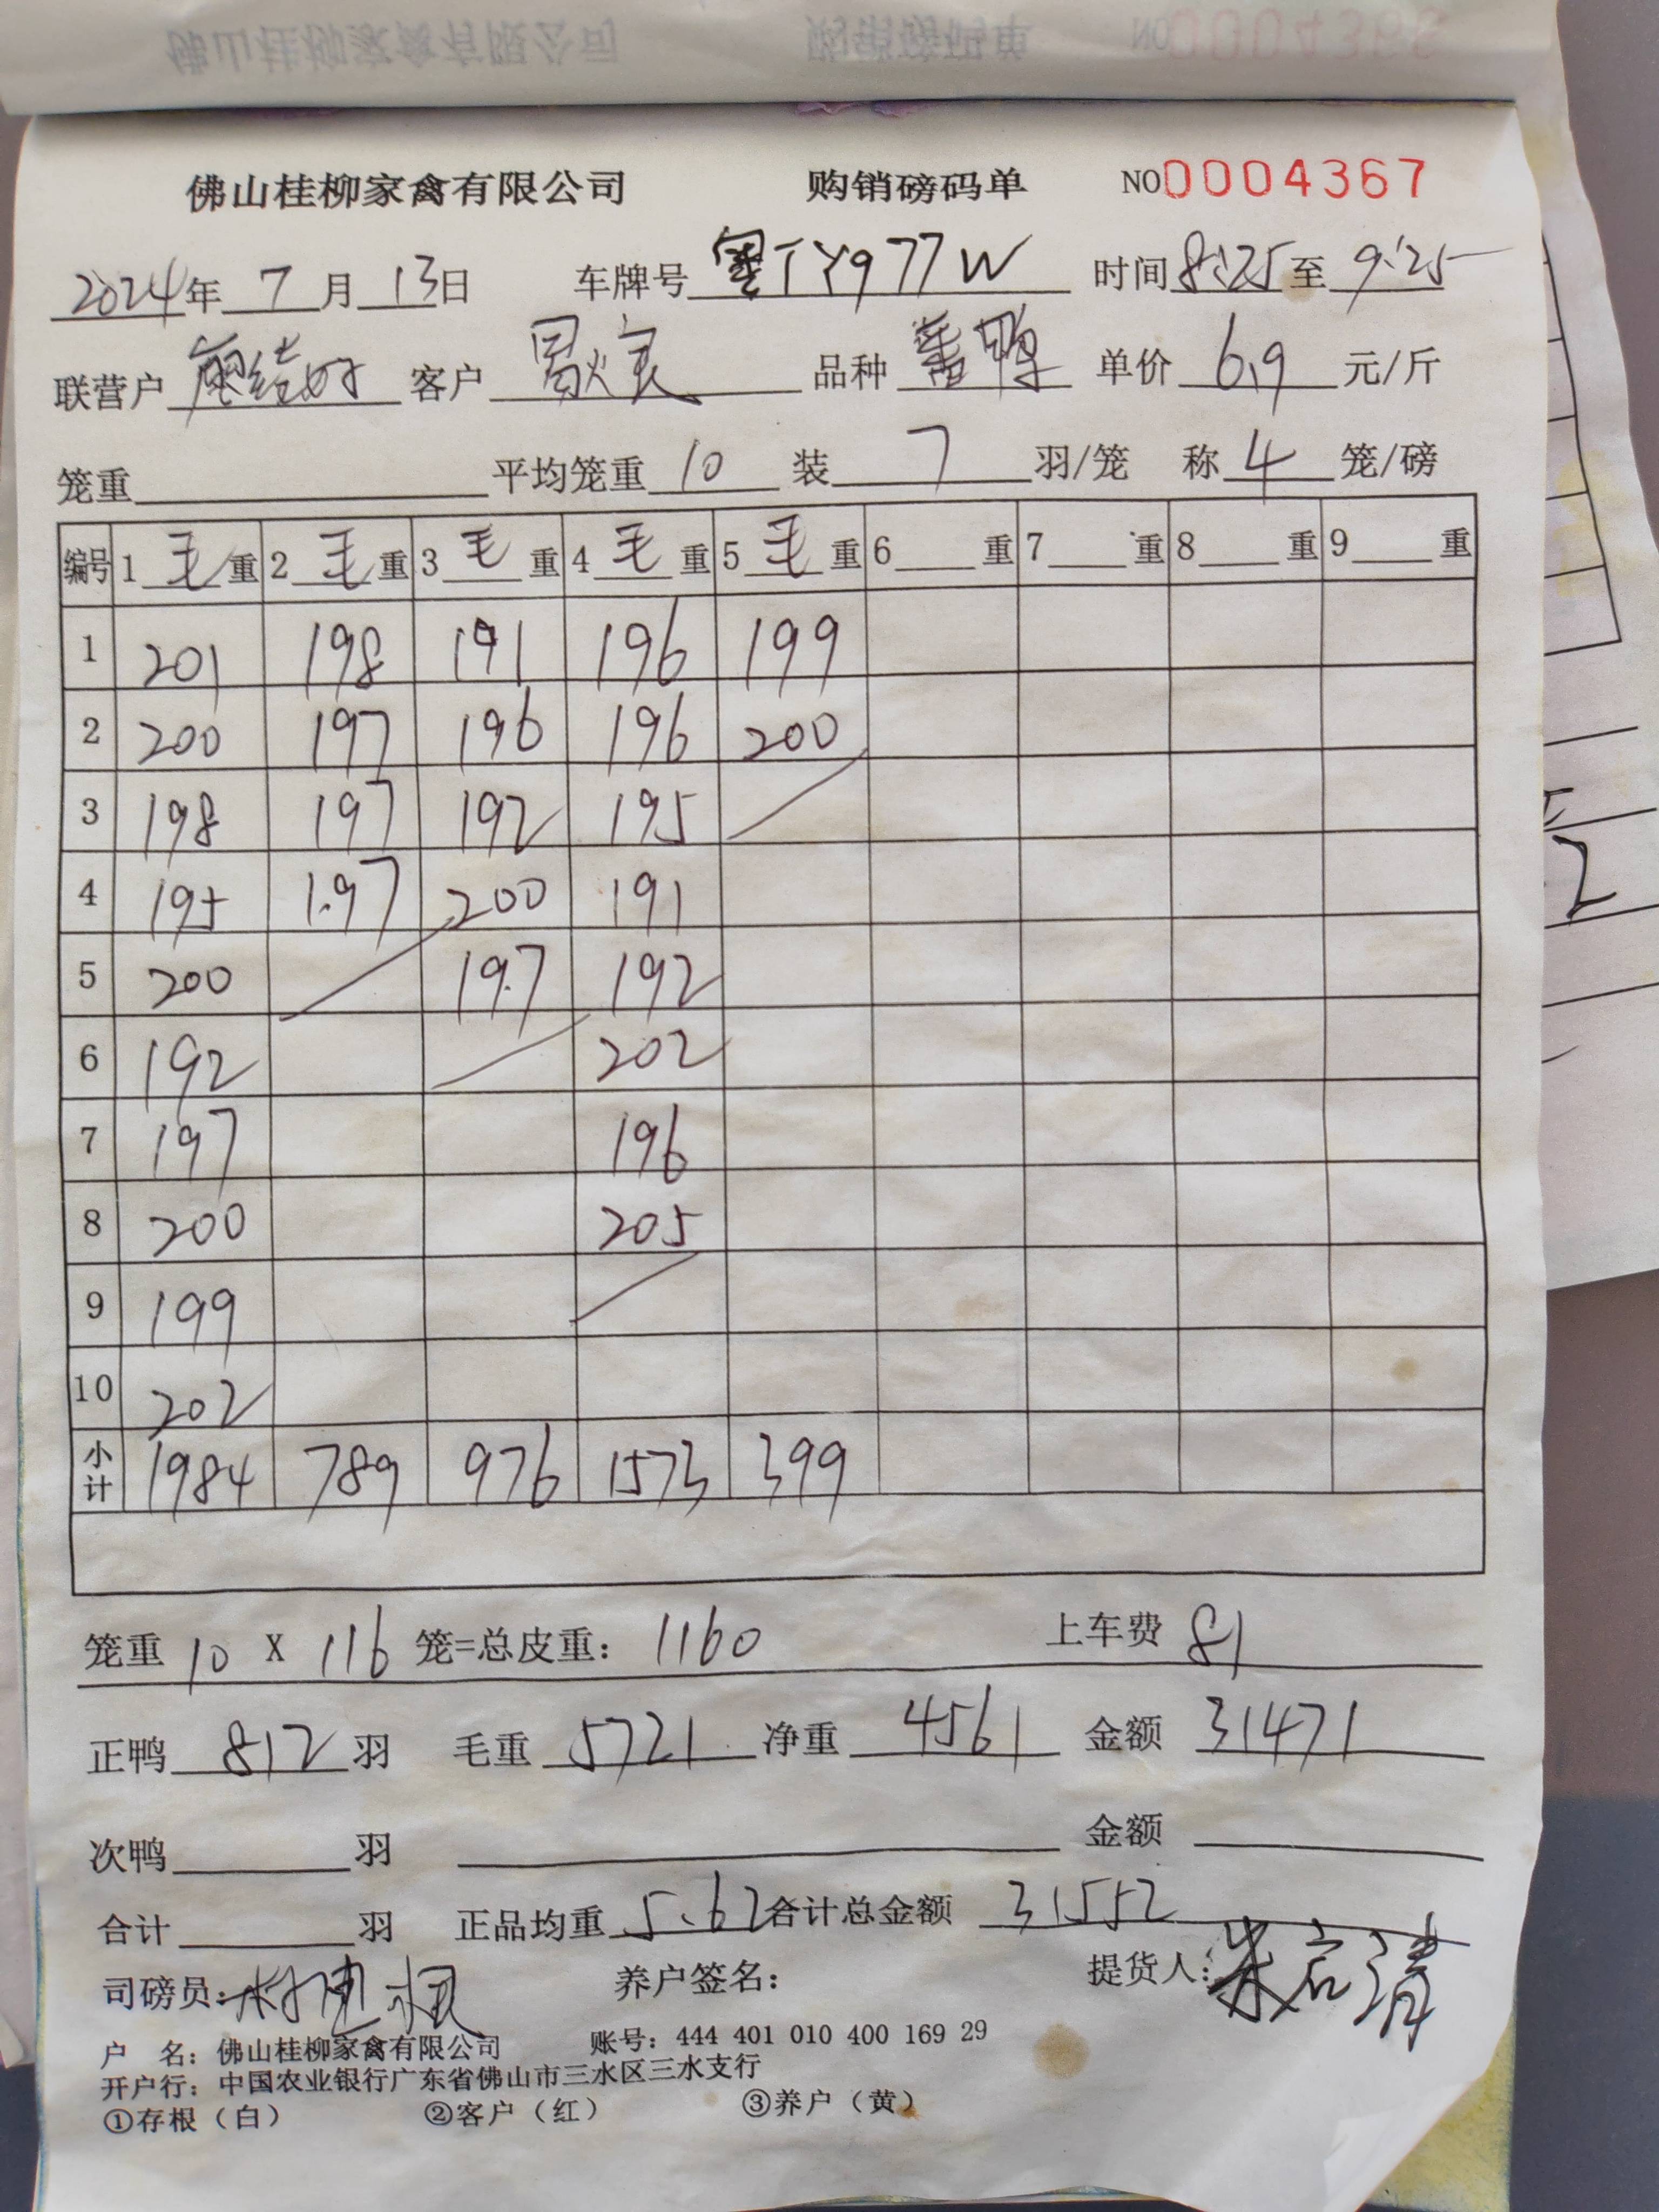 佛山桂柳家禽有限公司 购销磅码单 NO0004367
2024年 7月 13日 车牌号 粤TY977W 时间 8:25 至 9:25
联营户 客户 品种 番鸭 单价 6.9 元/斤
笼重 平均笼重 10 装 7 羽/笼 称 4 笼/磅
编号 1 毛 重 2 毛 重 3 毛 重 4 毛 重 5 毛 重 6 重 7 重 8 重 9 重
1 201 198 191 196 199
2 200 197 196 196 200
3 198 197 192 195
4 195 197 200 191
5 200 197 192
6 192 202
7 197 196
8 200 205
9 199
10 202
小计 1984 789 976 1573 399
笼重 10 X 116 笼=总皮重: 1160 上车费 81
正鸭 812 羽 毛重 5721 净重 4561 金额 31471
次鸭 羽 金额
合计 羽 正品均重 5.62 合计总金额 31552
司磅员: 养户签名: 提货人:
户 名: 佛山桂柳家禽有限公司 账号: 444 401 010 400 169 29
开户行: 中国农业银行广东省佛山市三水区三水支行
①存根（白） ②客户（红） ③养户（黄）